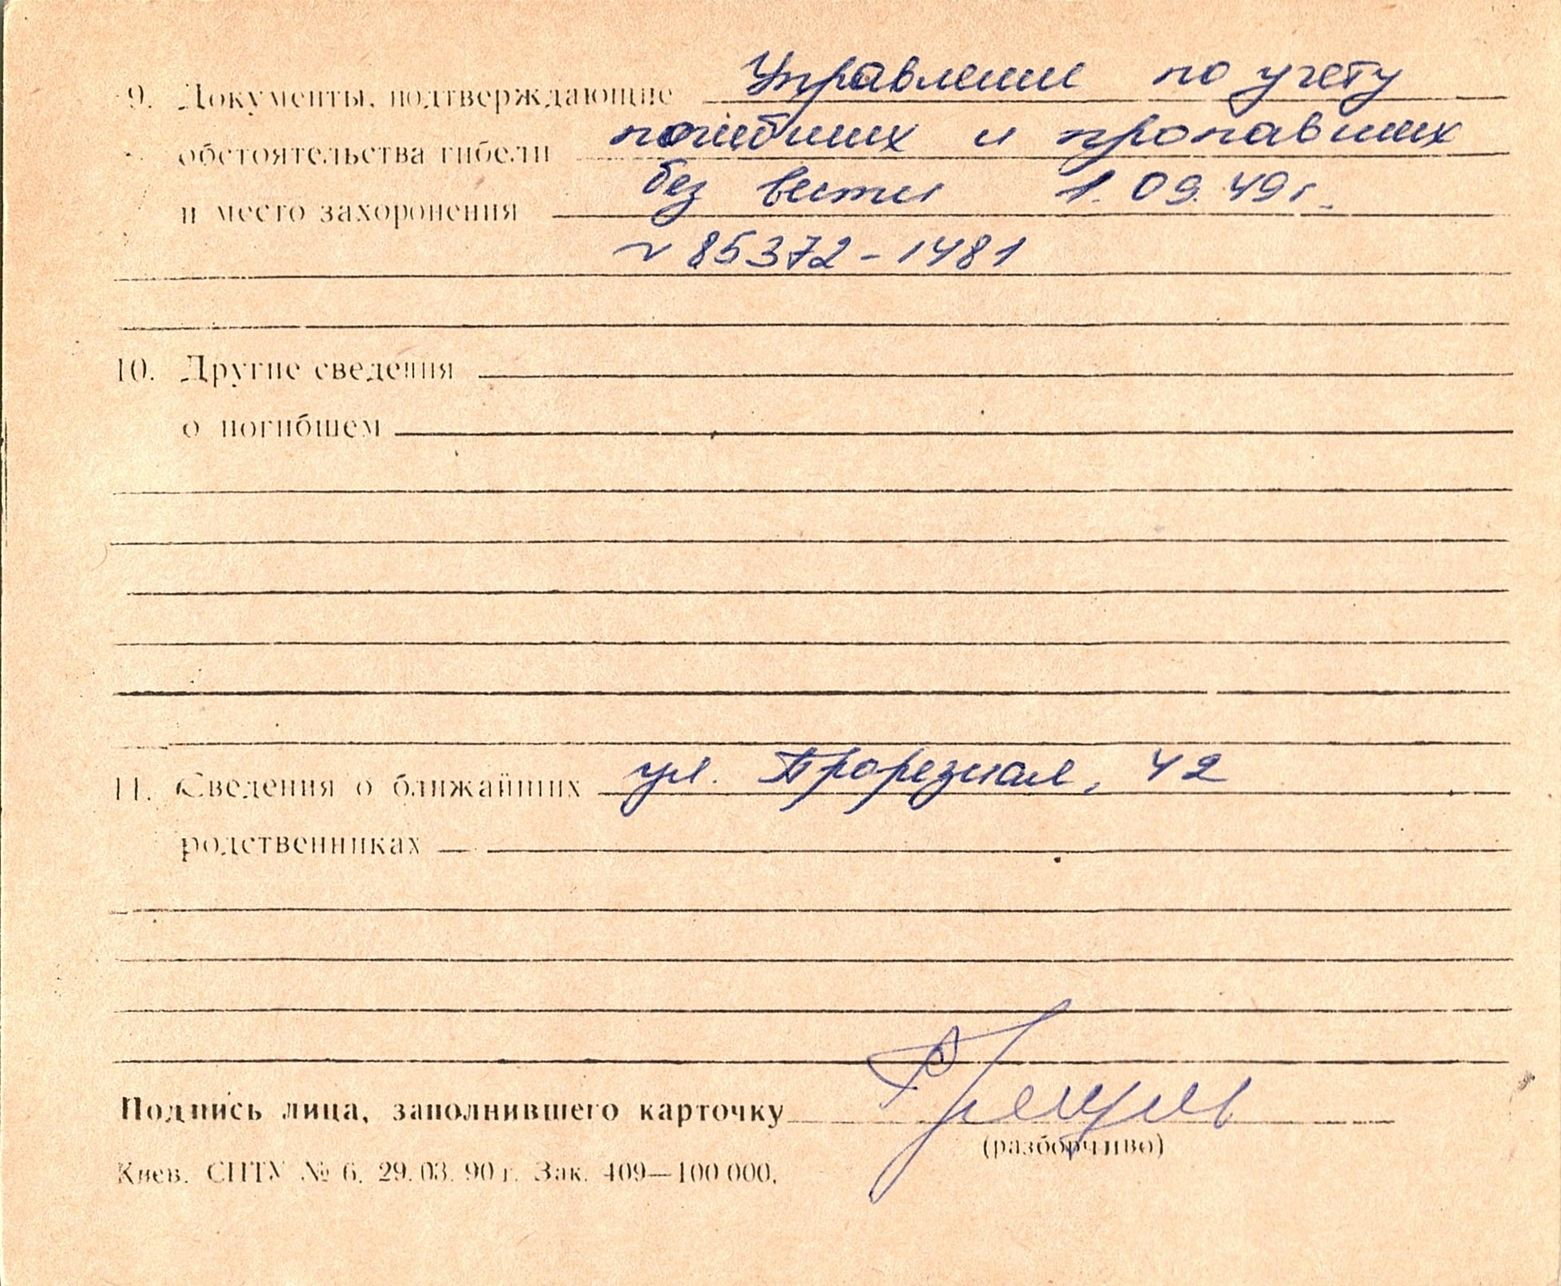 9. Документы, подтверждающие Управление по учету
обстоятельства гибели погибших и пропавших
и место захоронения без вести 1.09.49г.
№ 85372-1481
10. Другие сведения
о погибшем
11. Сведения о ближайших ул. Прорезная, 42
родственниках
Подпись лица, заполнившего карточку
(разборчиво)
Киев. СПТУ № 6. 29.03.90 г. Зак. 409—100 000.